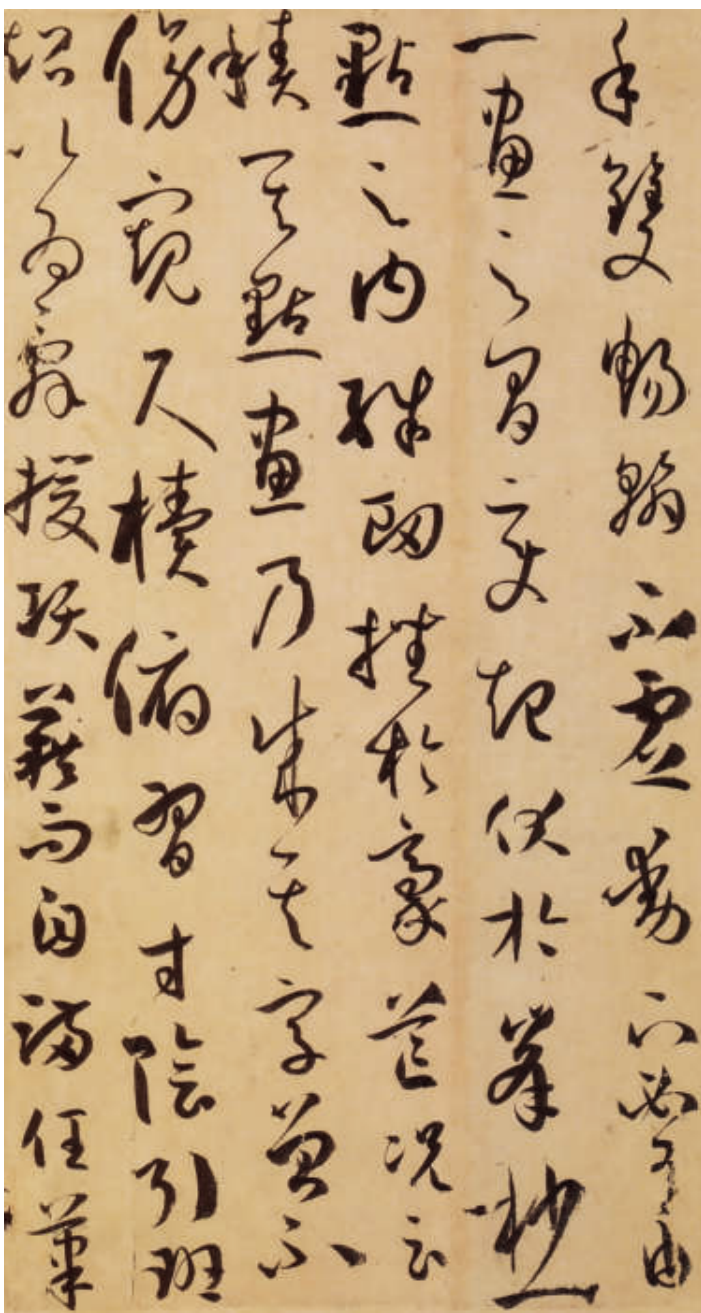 手雙暢翰不虛動下必有由
一畫之間變起伏於峯杪一
點之內殊衄挫於豪芒況云
積其點畫乃成其字曾不
傍窺尺櫝俯習寸陰引班
超以為辭援項籍而自滿任筆